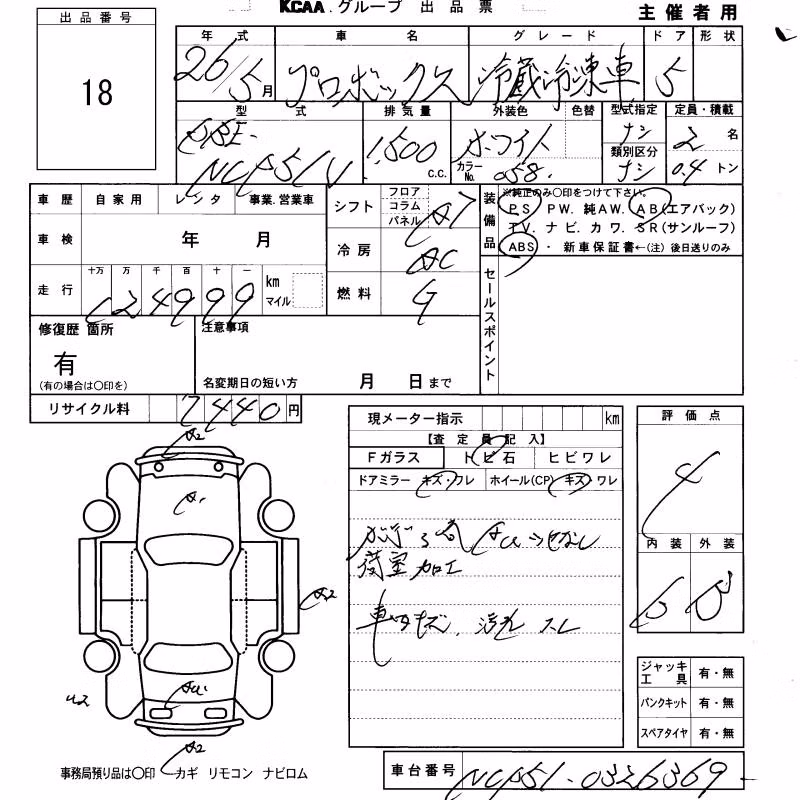 KCAA.グループ 出品票
主催者用
出品番号
18
年式 車名 グレード ドア 形状
26/5月 プロボックス 冷蔵冷凍車 5
型式 排気量 外装色 色替 型式指定 定員・積載
DBE-
NCP51V 1,500 c.c. ホワイト カラーNo. 058 ナシ 2名
類別区分
ナシ 0.4トン
車歴 自家用 レンタ 事業.営業車
車検 年 月
走行 十万 万 千 百 十 一
124999 km マイル
シフト フロア コラム パネル A7
冷房 AC
燃料 G
装備品 ※純正のみ○印をつけて下さい。
PS PW. 純AW. AB(エアバック)
TV. ナビ. カワ. SR(サンルーフ)
ABS ・ 新車保証書←(注) 後日送りのみ
セールスポイント
修復歴 箇所
有
(有の場合は○印を)
注意事項
名変期日の短い方 月 日まで
リサイクル料 7440円
現メーター指示 km
【査定員記入】
Fガラス トビ石 ヒビワレ
ドアミラー キズ・ワレ ホイール(CP) キズ・ワレ
荷室加工
車内キズ、汚れ スレ
評価点
4
内装 外装
A2
A1
A2
U2
AU
A2
ジャッキ工具 有・無
パンクキット 有・無
スペアタイヤ 有・無
事務局預り品は○印 カギ リモコン ナビロム
車台番号 NCP51-0326369-